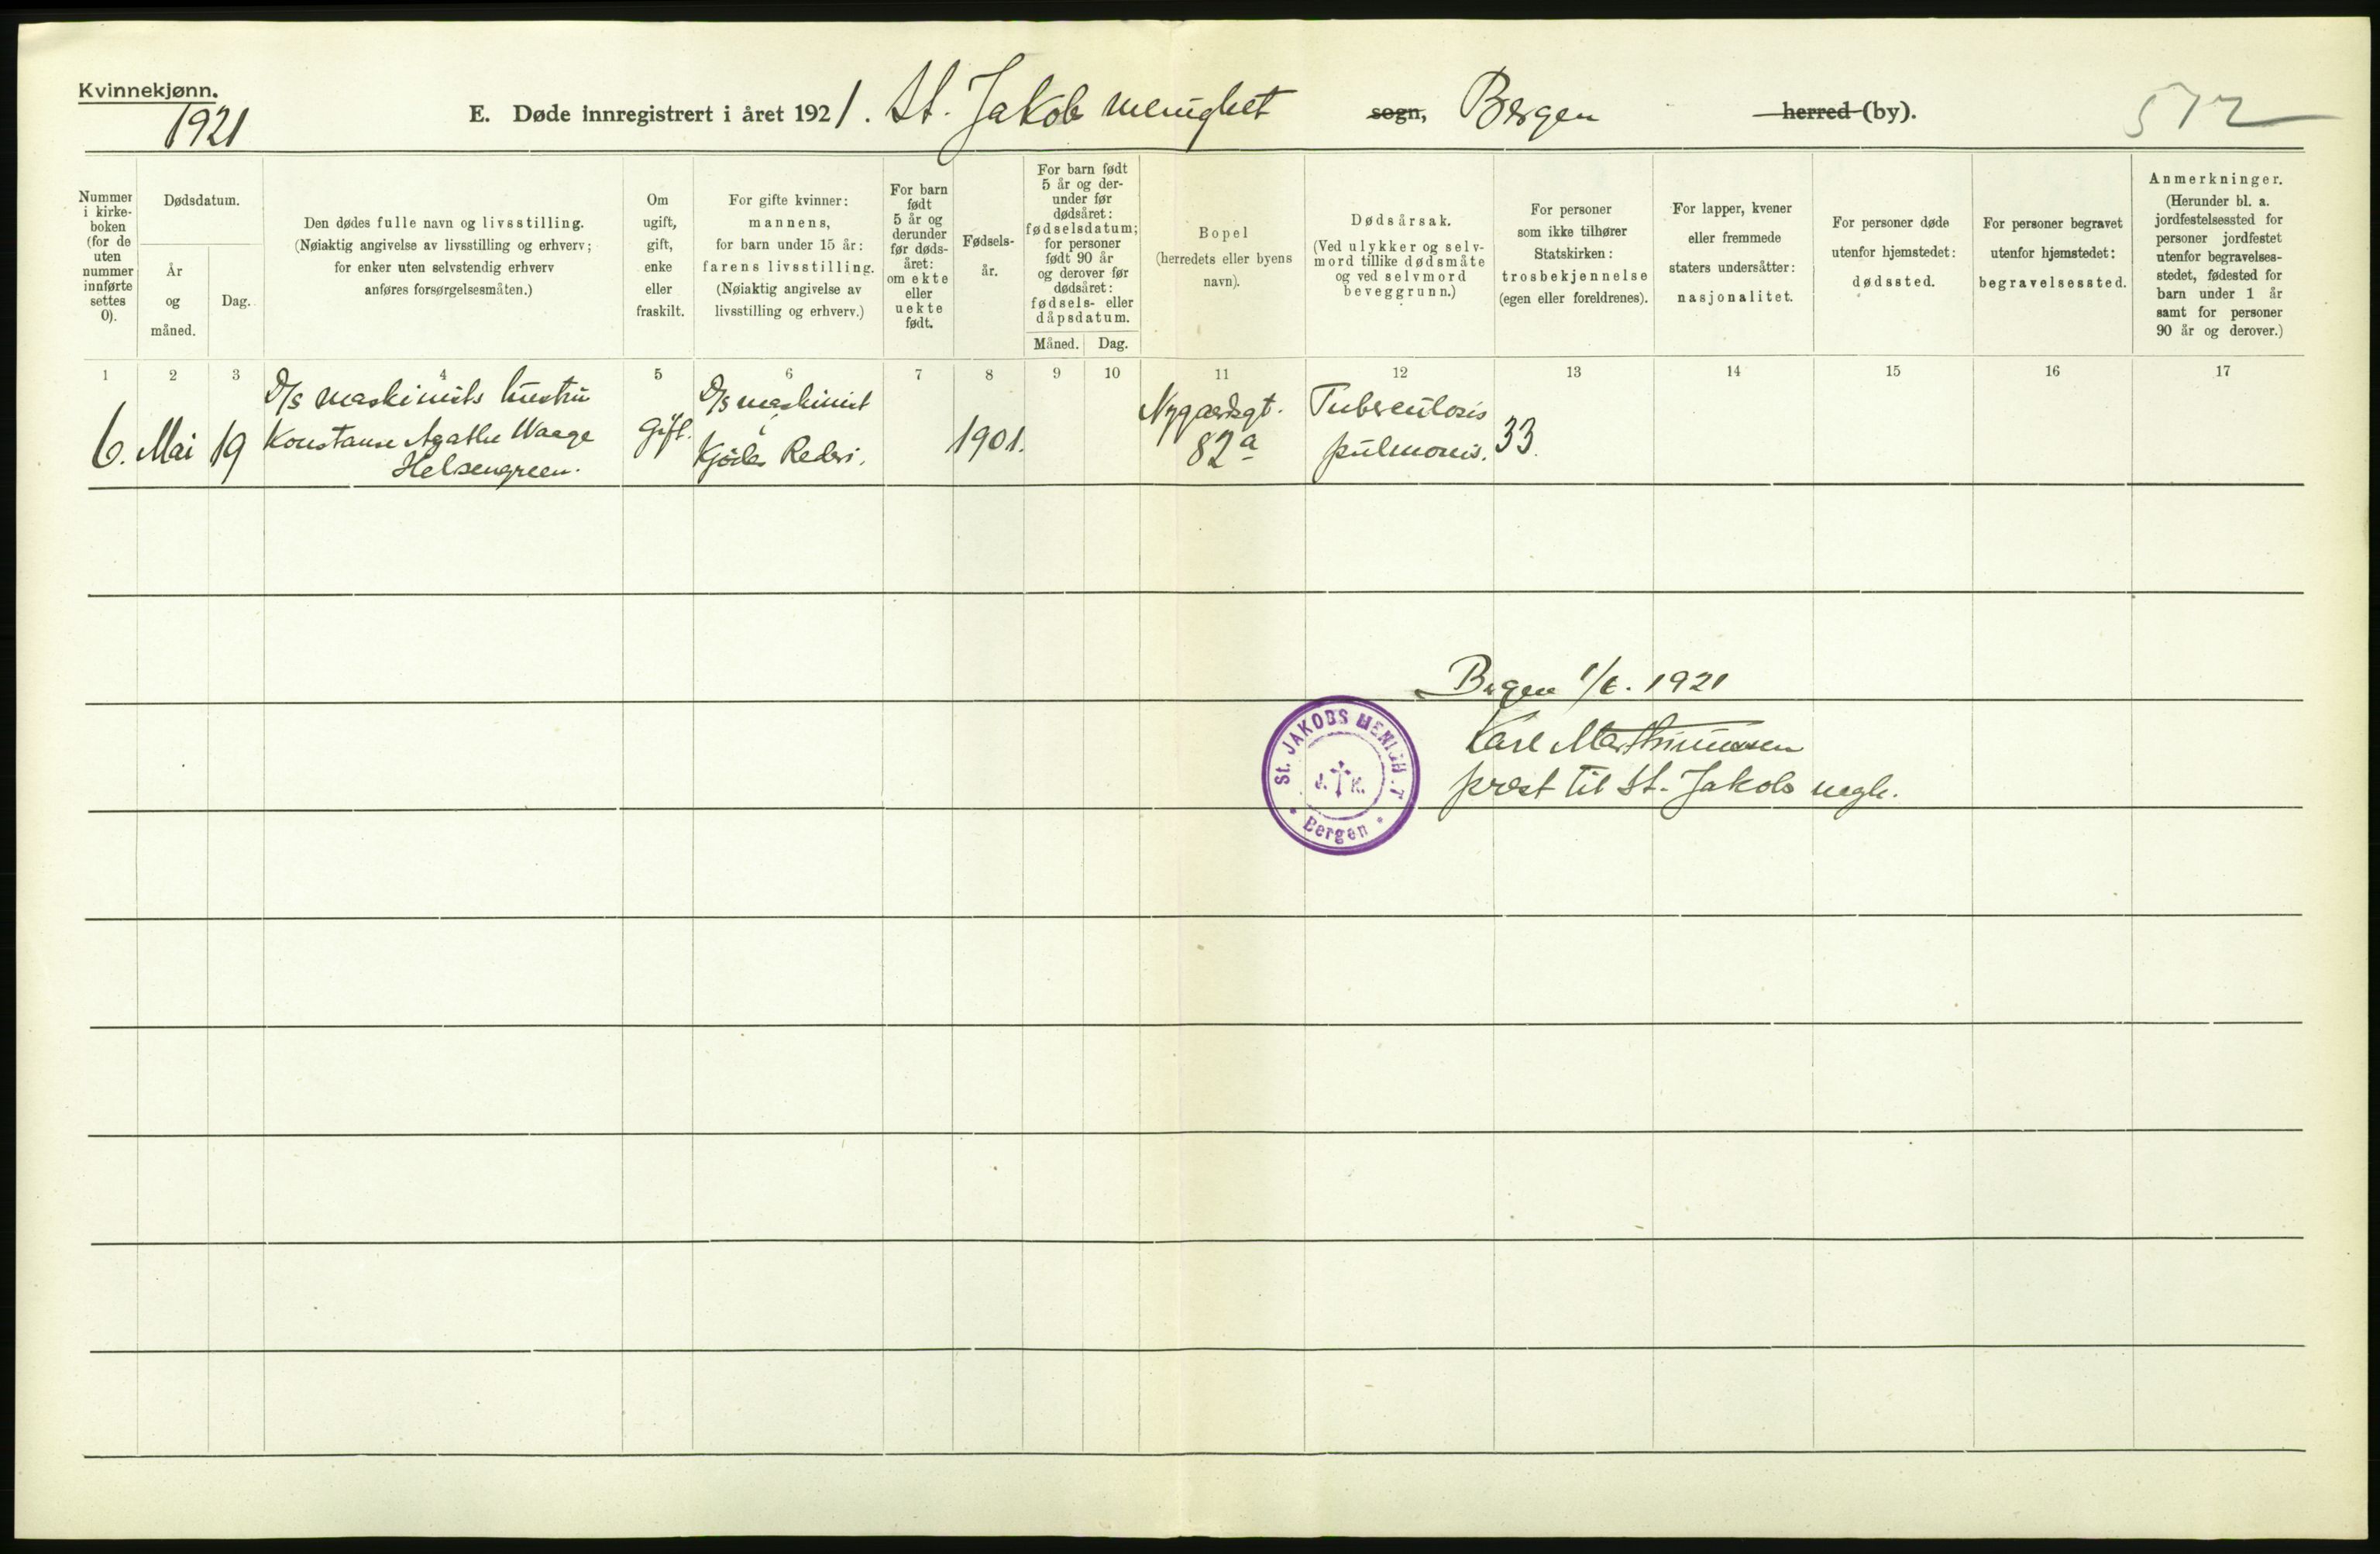 Kvinnekjønn.
1921
E. Døde innregistrert i året 1921. St. Jakob menighet sogn, Bergen herred (by).
572
Nummer
i kirke-
boken
(for de
uten
nummer
innførte
settes
0).
Dødsdatum.
År
og
måned.
Dag.
Den dødes fulle navn og livsstilling.
(Nøiaktig angivelse av livsstilling og erhverv;
for enker uten selvstendig erhverv
anføres forsørgelsesmåten.)
Om
ugift,
gift,
enke
eller
fraskilt.
For gifte kvinner:
mannens,
for barn under 15 år:
farens livsstilling.
(Nøiaktig angivelse av
livsstilling og erhverv.)
For barn
født
5 år og
derunder
før døds-
året:
om ekte
eller
uekte
født.
Fødsels-
år.
For barn født
5 år og der-
under før
dødsåret:
fødselsdatum;
for personer
født 90 år
og derover før
dødsåret:
fødsels- eller
dåpsdatum.
Måned.
Dag.
Bopel
(herredets eller byens
navn).
Dødsårsak.
(Ved ulykker og selv-
mord tillike dødsmåte
og ved selvmord
beveggrunn.)
For personer
som ikke tilhører
Statskirken:
trosbekjennelse
(egen eller foreldrenes).
For lapper, kvener
eller fremmede
staters undersåtter:
nasjonalitet.
For personer døde
utenfor hjemstedet:
dødssted.
For personer begravet
utenfor hjemstedet:
begravelsessted.
Anmerkninger.
(Herunder bl. a.
jordfestelsessted for
personer jordfestet
utenfor begravelses-
stedet, fødested for
barn under 1 år
samt for personer
90 år og derover.)
1 2 3 4 5 6 7 8 9 10 11 12 13 14 15 16 17
6. Mai 19
D/s maskinists hustru
Konstanse Agathe Waage
Helsengreen.
gift.
D/s maskinist
i
Kjødes Rederi.
1901.
Nygaardsgt.
82a
Tuberculosis
pulmonis.
33.
Bergen 1/6. 1921
Karl Marthinussen
prest til St. Jakobs mgh.
St. JAKOBS MENIGHET
J. K.
Bergen